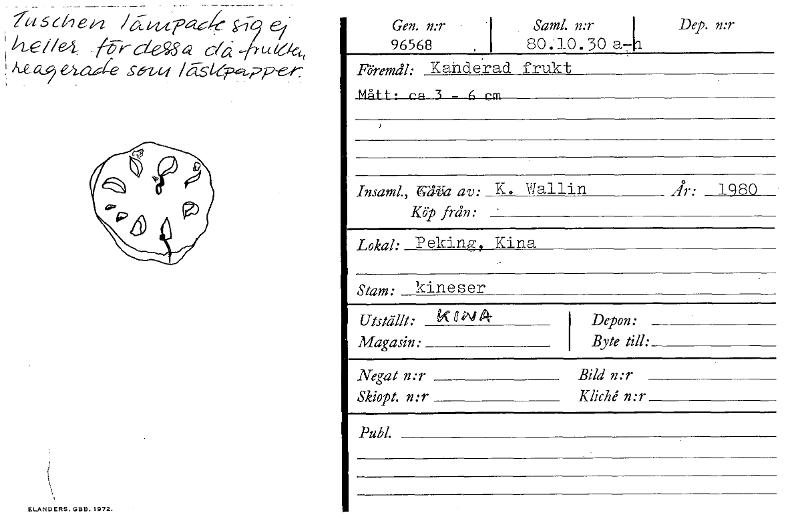 Tuschen lämpade sig ej
heller för dessa då frukten
reagerade som läskpapper.
Gen. n:r
Saml. n:r
Dep. n:r
96568
80.10.30 a-h
Föremål: Kanderad frukt
Mått: ca 3 - 6 cm
Insaml., Gåva av: K. Wallin
År: 1980
Köp från:
Lokal: Peking, Kina
Stam: kineser
Utställt: KINA
Depon:
Magasin:
Byte till:
Negat n:r
Bild n:r
Skiopt. n:r
Kliché n:r
Publ.
ELANDERS, GBG. 1972.